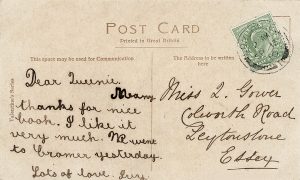 POST CARD
Printed in Great Britain
This space may be used for Communication
The Address to be written here
Valentine's Series
Dear Queenie.
Many
thanks for nice
book. I like it
very much. We went
to Cromer yesterday.
Lots of love. Ivy.
Miss Q. Gower
Colworth Road
Leytonstone
Essex